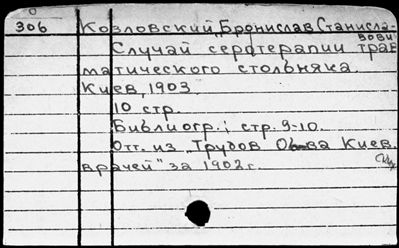 306 Козловский, Бронислав Станисла-
вович
Случай серотерапии трав
матического столбняка.
Киев, 1903
10 стр.
Библиогр.: стр. 9-10.
Отт. из "Трудов О-ва Киев.
врачей" за 1902 г.